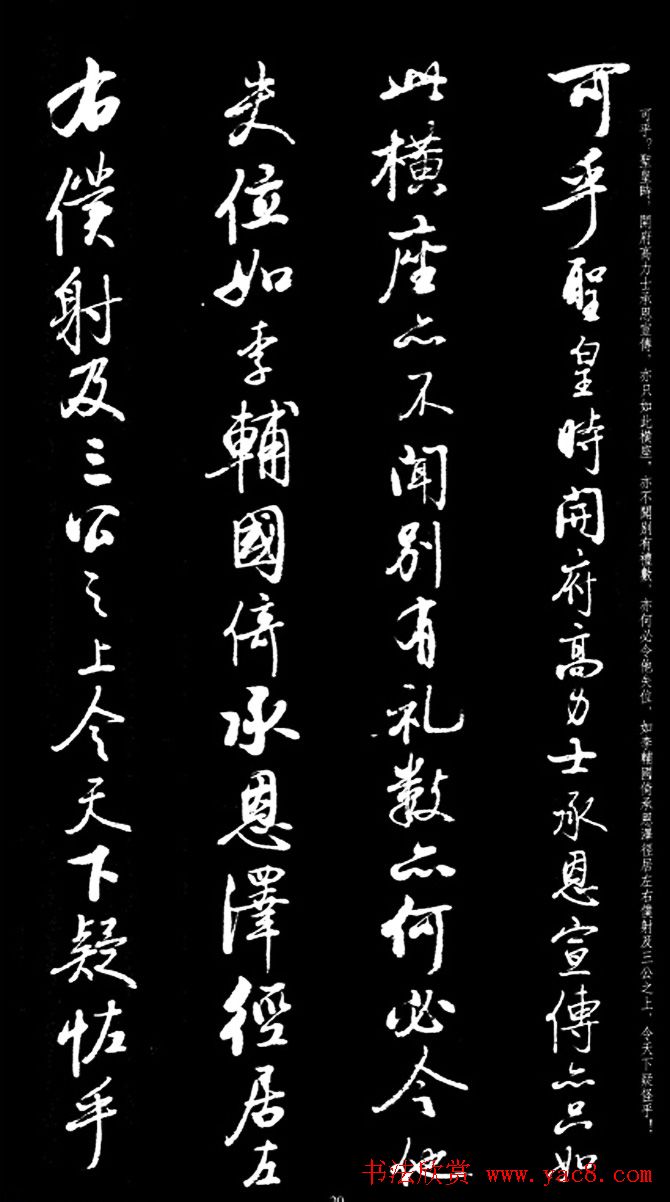 可乎？聖皇時，開府高力士承恩宣傳，亦只如此橫座，亦不聞別有禮數，亦何必令他失位，如李輔國倚承恩澤徑居左右僕射及三公之上，令天下疑怪乎！
可乎聖皇時開府高力士承恩宣傳亦只如
此橫座亦不聞別有礼數亦何必令他
失位如李輔國倚承恩澤徑居左
右僕射及三公之上令天下疑怪乎
书法欣赏 www.yac8.com
20